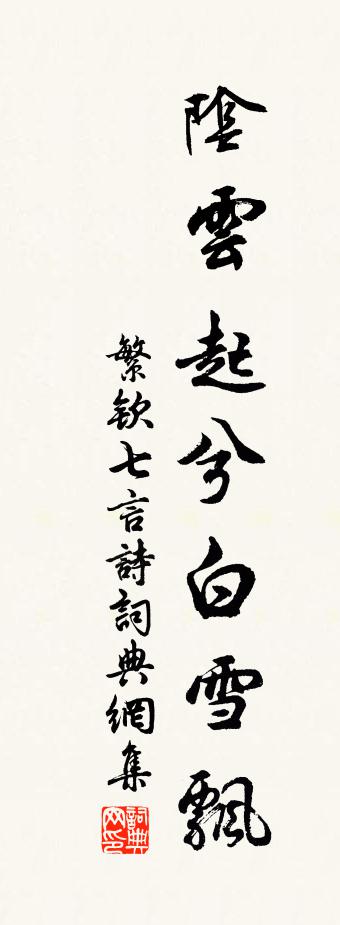 陰雲起兮白雪飄
繁欽七言詩詞典網集
詞典網印